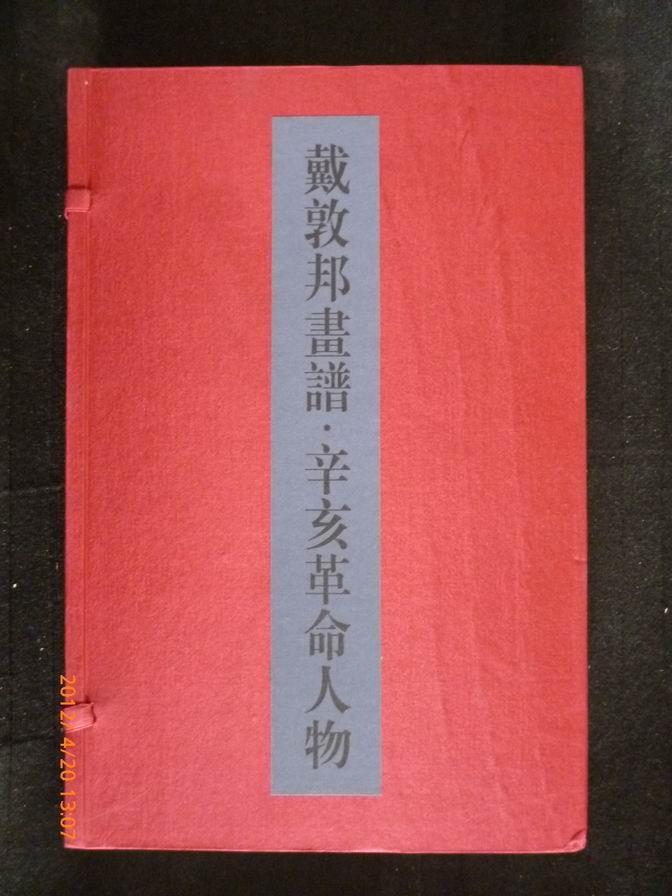 戴敦邦畫譜·辛亥革命人物
2012/4/20 13:07